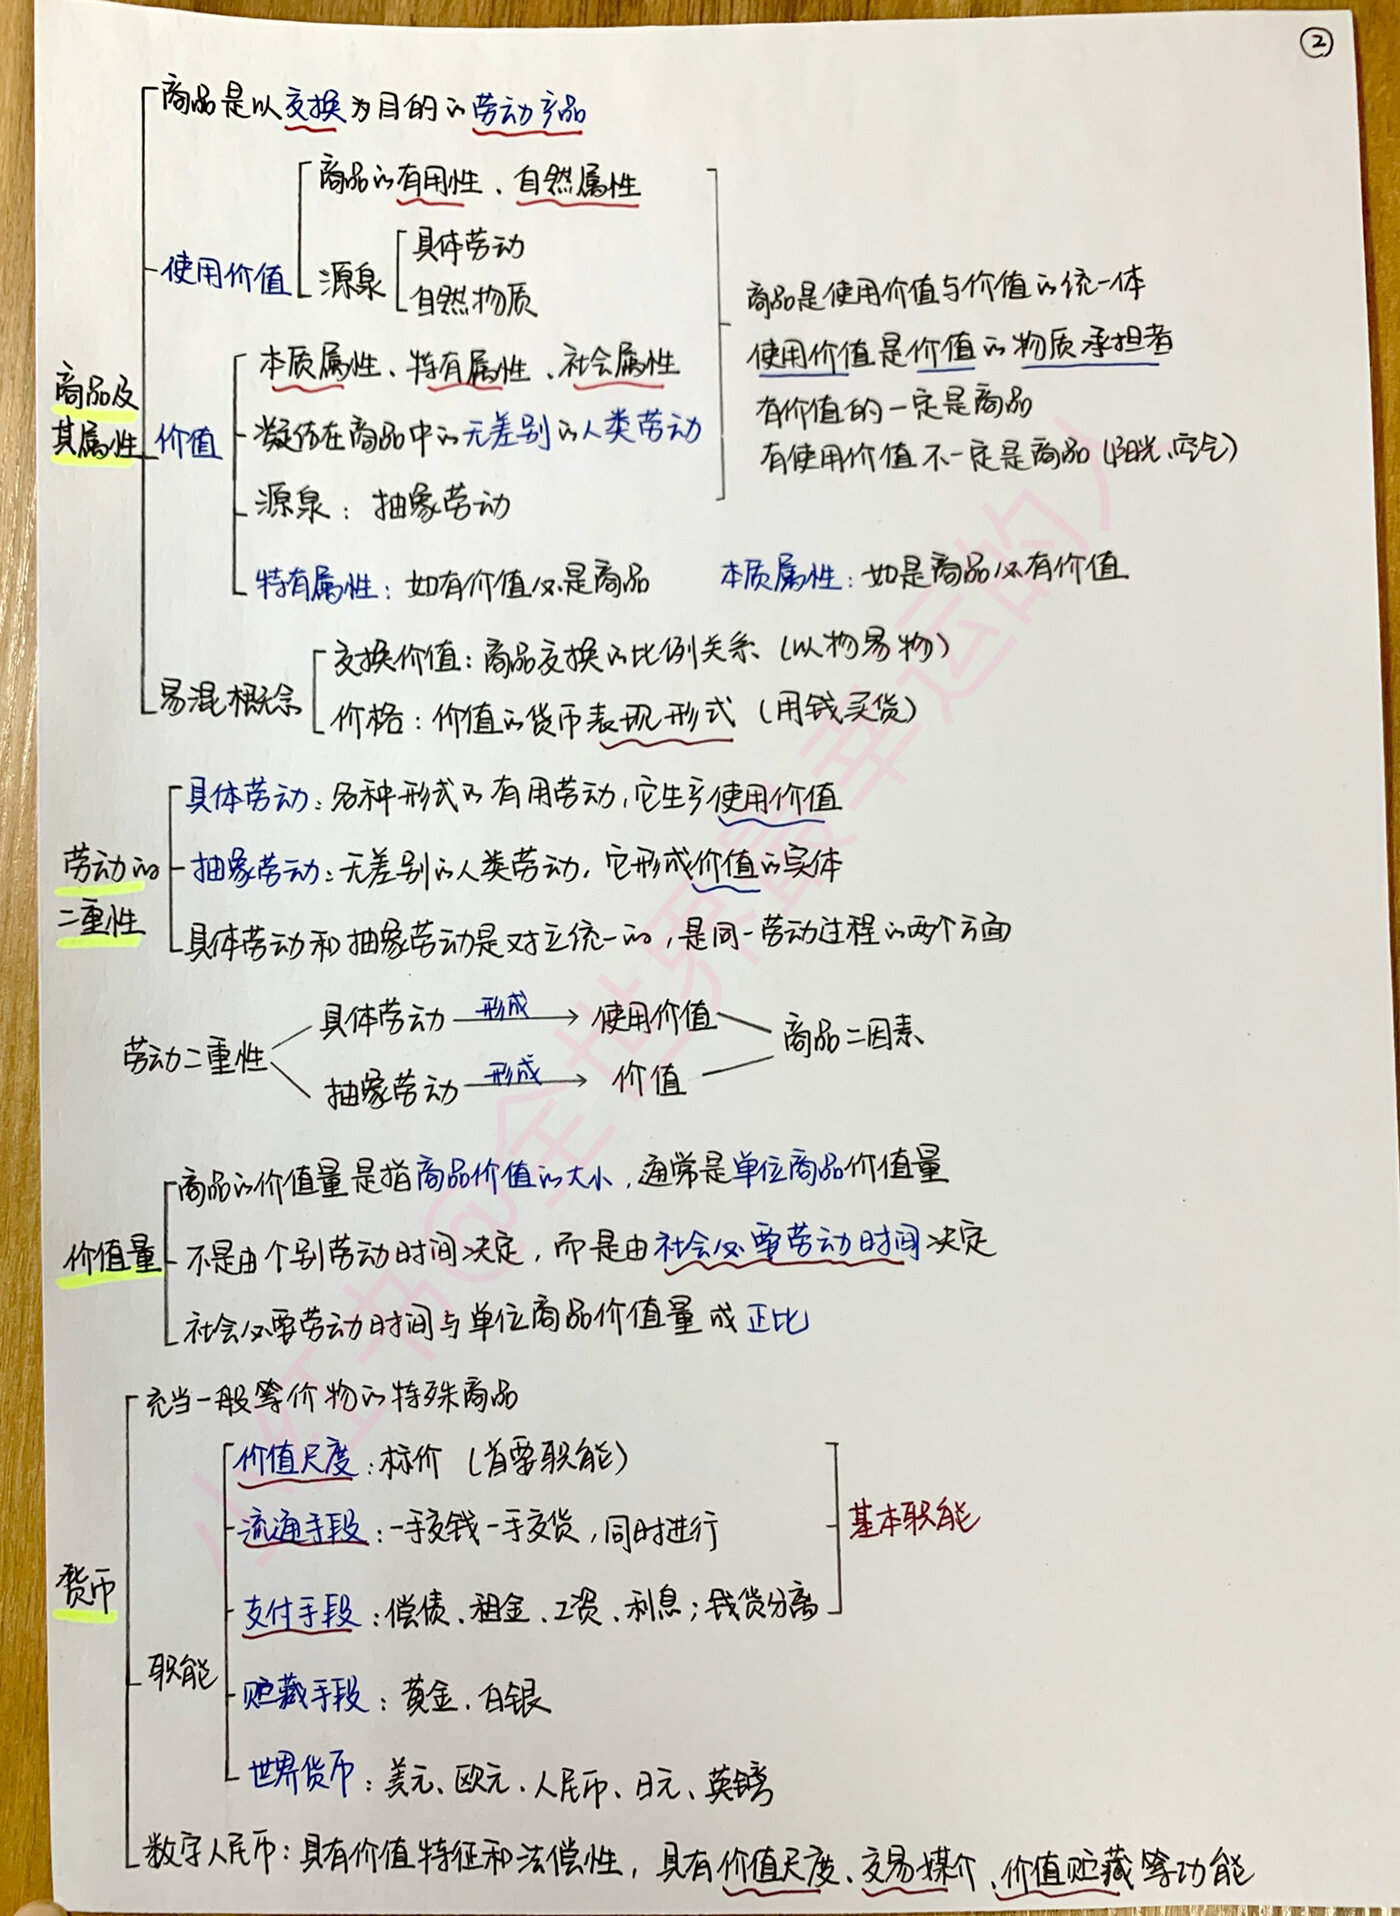 ②
商品是以交换为目的的劳动产品
商品的有用性、自然属性
使用价值
源泉
具体劳动
自然物质
商品及
其属性
价值
本质属性、特有属性、社会属性
凝结在商品中的无差别的人类劳动
源泉：抽象劳动
特有属性：如有价值必是商品 本质属性：如是商品必有价值
商品是使用价值与价值的统一体
使用价值是价值的物质承担者
有价值的一定是商品
有使用价值不一定是商品(阳光、空气)
易混概念
交换价值：商品交换的比例关系(以物易物)
价格：价值的货币表现形式(用钱买货)
劳动的
二重性
具体劳动：各种形式的有用劳动，它生产使用价值
抽象劳动：无差别的人类劳动，它形成价值的实体
具体劳动和抽象劳动是对立统一的，是同一劳动过程的两个方面
劳动二重性
具体劳动 形成 使用价值
抽象劳动 形成 价值
商品二因素
价值量
商品的价值量是指商品价值的大小，通常是单位商品价值量
不是由个别劳动时间决定，而是由社会必要劳动时间决定
社会必要劳动时间与单位商品价值量成正比
货币
充当一般等价物的特殊商品
职能
价值尺度：标价(首要职能)
流通手段：一手交钱一手交货，同时进行
支付手段：偿债、租金、工资、利息；钱货分离
基本职能
贮藏手段：黄金、白银
世界货币：美元、欧元、人民币、日元、英镑
数字人民币：具有价值特征和法偿性，具有价值尺度、交易媒介、价值贮藏等功能
小红书@全世界最幸运的人